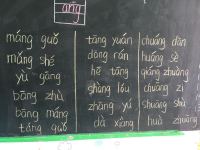 ang
máng guǒ
mǎng shé
yú gāng
bāng zhù
bāng máng
táng guǒ
tāng yuán
dōng rán
hē tāng
shàng lóu
zhāng yú
dà xiàng
chuáng dān
huáng sè
qiáng zhuàng
chuāng zi
shuāng shǒu
huà zhuāng